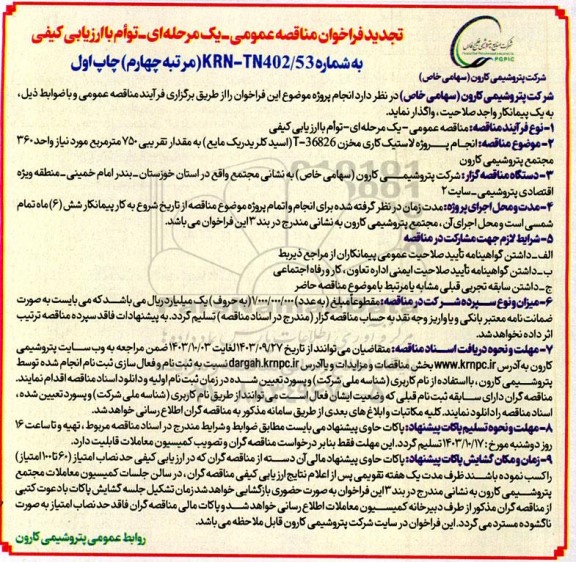 تجدید فراخوان مناقصه عمومی_یک مرحله‌ای_توأم باارزیابی کیفی
به شماره KRN-TN402/53 (مرتبه چهارم) چاپ اول
شرکت صنایع پتروشیمی خلیج فارس
PGPIC
شرکت پتروشیمی کارون (سهامی خاص)
شرکت پتروشیمی کارون (سهامی خاص) در نظر دارد انجام پروژه موضوع این فراخوان را از طریق برگزاری فرآیند مناقصه عمومی و با ضوابط ذیل،
به یک پیمانکار واجد صلاحیت، واگذار نماید.
۱-نوع فرآیند مناقصه: مناقصه عمومی -یک مرحله‌ای-توأم با ارزیابی کیفی
۲-موضوع مناقصه: انجام پـــروژه لاستیک کاری مخزن T-36826 (اسید کلریدریک مایع) به مقدار تقریبی ۷۵۰ مترمربع مورد نیاز واحد ۳۶۰
مجتمع پتروشیمی کارون
۳-دستگاه مناقصه گزار: شرکت پتروشیمــی کارون (سهامی خاص) به نشانی مجتمع واقع در استان خوزستان_بندر امام خمینی_منطقه ویژه
اقتصادی پتروشیمی_سایت ۲
۴-مدت و محل اجرای پروژه: مدت زمان در نظر گرفته شده برای انجام و اتمام پروژه موضوع مناقصه از تاریخ شروع به کار پیمانکار شش (۶) ماه تمام
شمسی است و محل اجرای آن، مجتمع پتروشیمی کارون به نشانی مندرج در بند ۳ این فراخوان می باشد.
۵-شرایط لازم جهت مشارکت در مناقصه
الف_داشتن گواهینامه تأیید صلاحیت عمومی پیمانکاران از مراجع ذیربط
ب_داشتن گواهینامه تأیید صلاحیت ایمنی اداره تعاون، کار و رفاه اجتماعی
ج_داشتن سابقه تجربی قبلی مشابه یا مرتبط با موضوع مناقصه حاضر
۶-میزان و نوع سپرده شرکت در مناقصه: مقطوعاً مبلغ (به عدد) ۷/۰۰۰/۰۰۰/۰۰۰ (به حروف) یک میلیارد ریال می باشد که می بایست به صورت
ضمانت نامه معتبر بانکی و یا واریز وجه نقد به حساب مناقصه گزار (مندرج در اسناد مناقصه) تسلیم گردد. به پیشنهادات فاقد سپرده مناقصه ترتیب
اثر داده نخواهد شد.
۷-مهلت و نحوه دریافت اسناد مناقصه: متقاضیان می توانند از تاریخ ۱۴۰۳/۰۹/۲۷ لغایت ۱۴۰۳/۱۰/۰۳ ضمن مراجعه به وب سایت پتروشیمی
کارون به آدرس www.krnpc.ir بخش مناقصات و مزایدات و یا آدرس dargah.krnpc.ir نسبت به ثبت نام و فعال سازی ثبت نام انجام شده توسط
پتروشیمی کارون، با استفاده از نام کاربری (شناسه ملی شرکت) و پسورد تعیین شده در زمان ثبت نام اولیه و دانلود اسناد مناقصه اقدام نمایند.
مناقصه گران دارای سابقه ثبت نام قبلی که وضعیت ایشان فعال است، می توانند از طریق نام کاربری (شناسه ملی شرکت) و پسورد تعیین شده،
اسناد مناقصه را دانلود نمایند. کلیه مکاتبات و ابلاغ های بعدی از طریق سامانه مذکور به مناقصه گران اطلاع رسانی خواهد شد.
۸-مهلت و نحوه تسلیم پاکات پیشنهاد: پاکات حاوی پیشنهاد می بایست مطابق ضوابط و شرایط مندرج در اسناد مناقصه مربوط، تهیه و تا ساعت ۱۶
روز دوشنبه مورخ ۱۴۰۳/۱۰/۱۷ تسلیم گردد. این مهلت فقط بنابر درخواست مناقصه گران و تصویب کمیسیون معاملات قابلیت دارد.
۹-زمان و مکان گشایش پاکات پیشنهاد: پاکات حاوی پیشنهاد مالی آن دسته از مناقصه گران که در ارزیابی کیفی حد نصاب امتیاز (۶۰ تا ۱۰۰ امتیاز)
را کسب نموده باشند ظرف مدت یک هفته تقویمی پس از اعلام نتایج ارزیابی کیفی مناقصه گران، در سالن جلسات کمیسیون معاملات مجتمع
پتروشیمی کارون به نشانی مندرج در بند ۳ این فراخوان به صورت حضوری بازگشایی خواهد شد زمان تشکیل جلسه گشایش پاکات با دعوت کتبی
از مناقصه گران مذکور از طرف دبیرخانه کمیسیون معاملات اطلاع رسانی خواهد شد و پاکات مالی مناقصه گران فاقد حد نصاب امتیاز به صورت
ناگشوده مسترد می گردد. این فراخوان در سایت شرکت پتروشیمی کارون قابل ملاحظه می باشد.
روابط عمومی پتروشیمی کارون